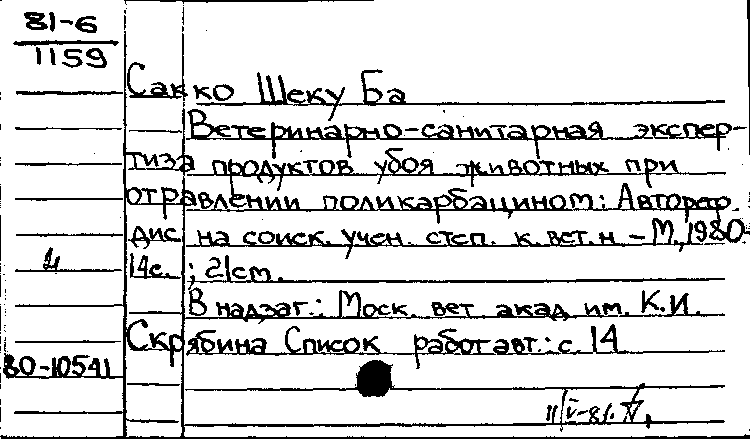 81-6
1159
Сакко Шеку Ба
Ветеринарно-санитарная экспер-
тиза продуктов убоя животных при
отравлении поликарбацином: Автореф.
дис. на соиск. учен. степ. к. вет. н. - М., 1980.
14с. ; 21см.
В надзаг.: Моск. вет. акад. им. К.И.
Скрябина Список работ авт.: с. 14
80-10541
11/V-81.